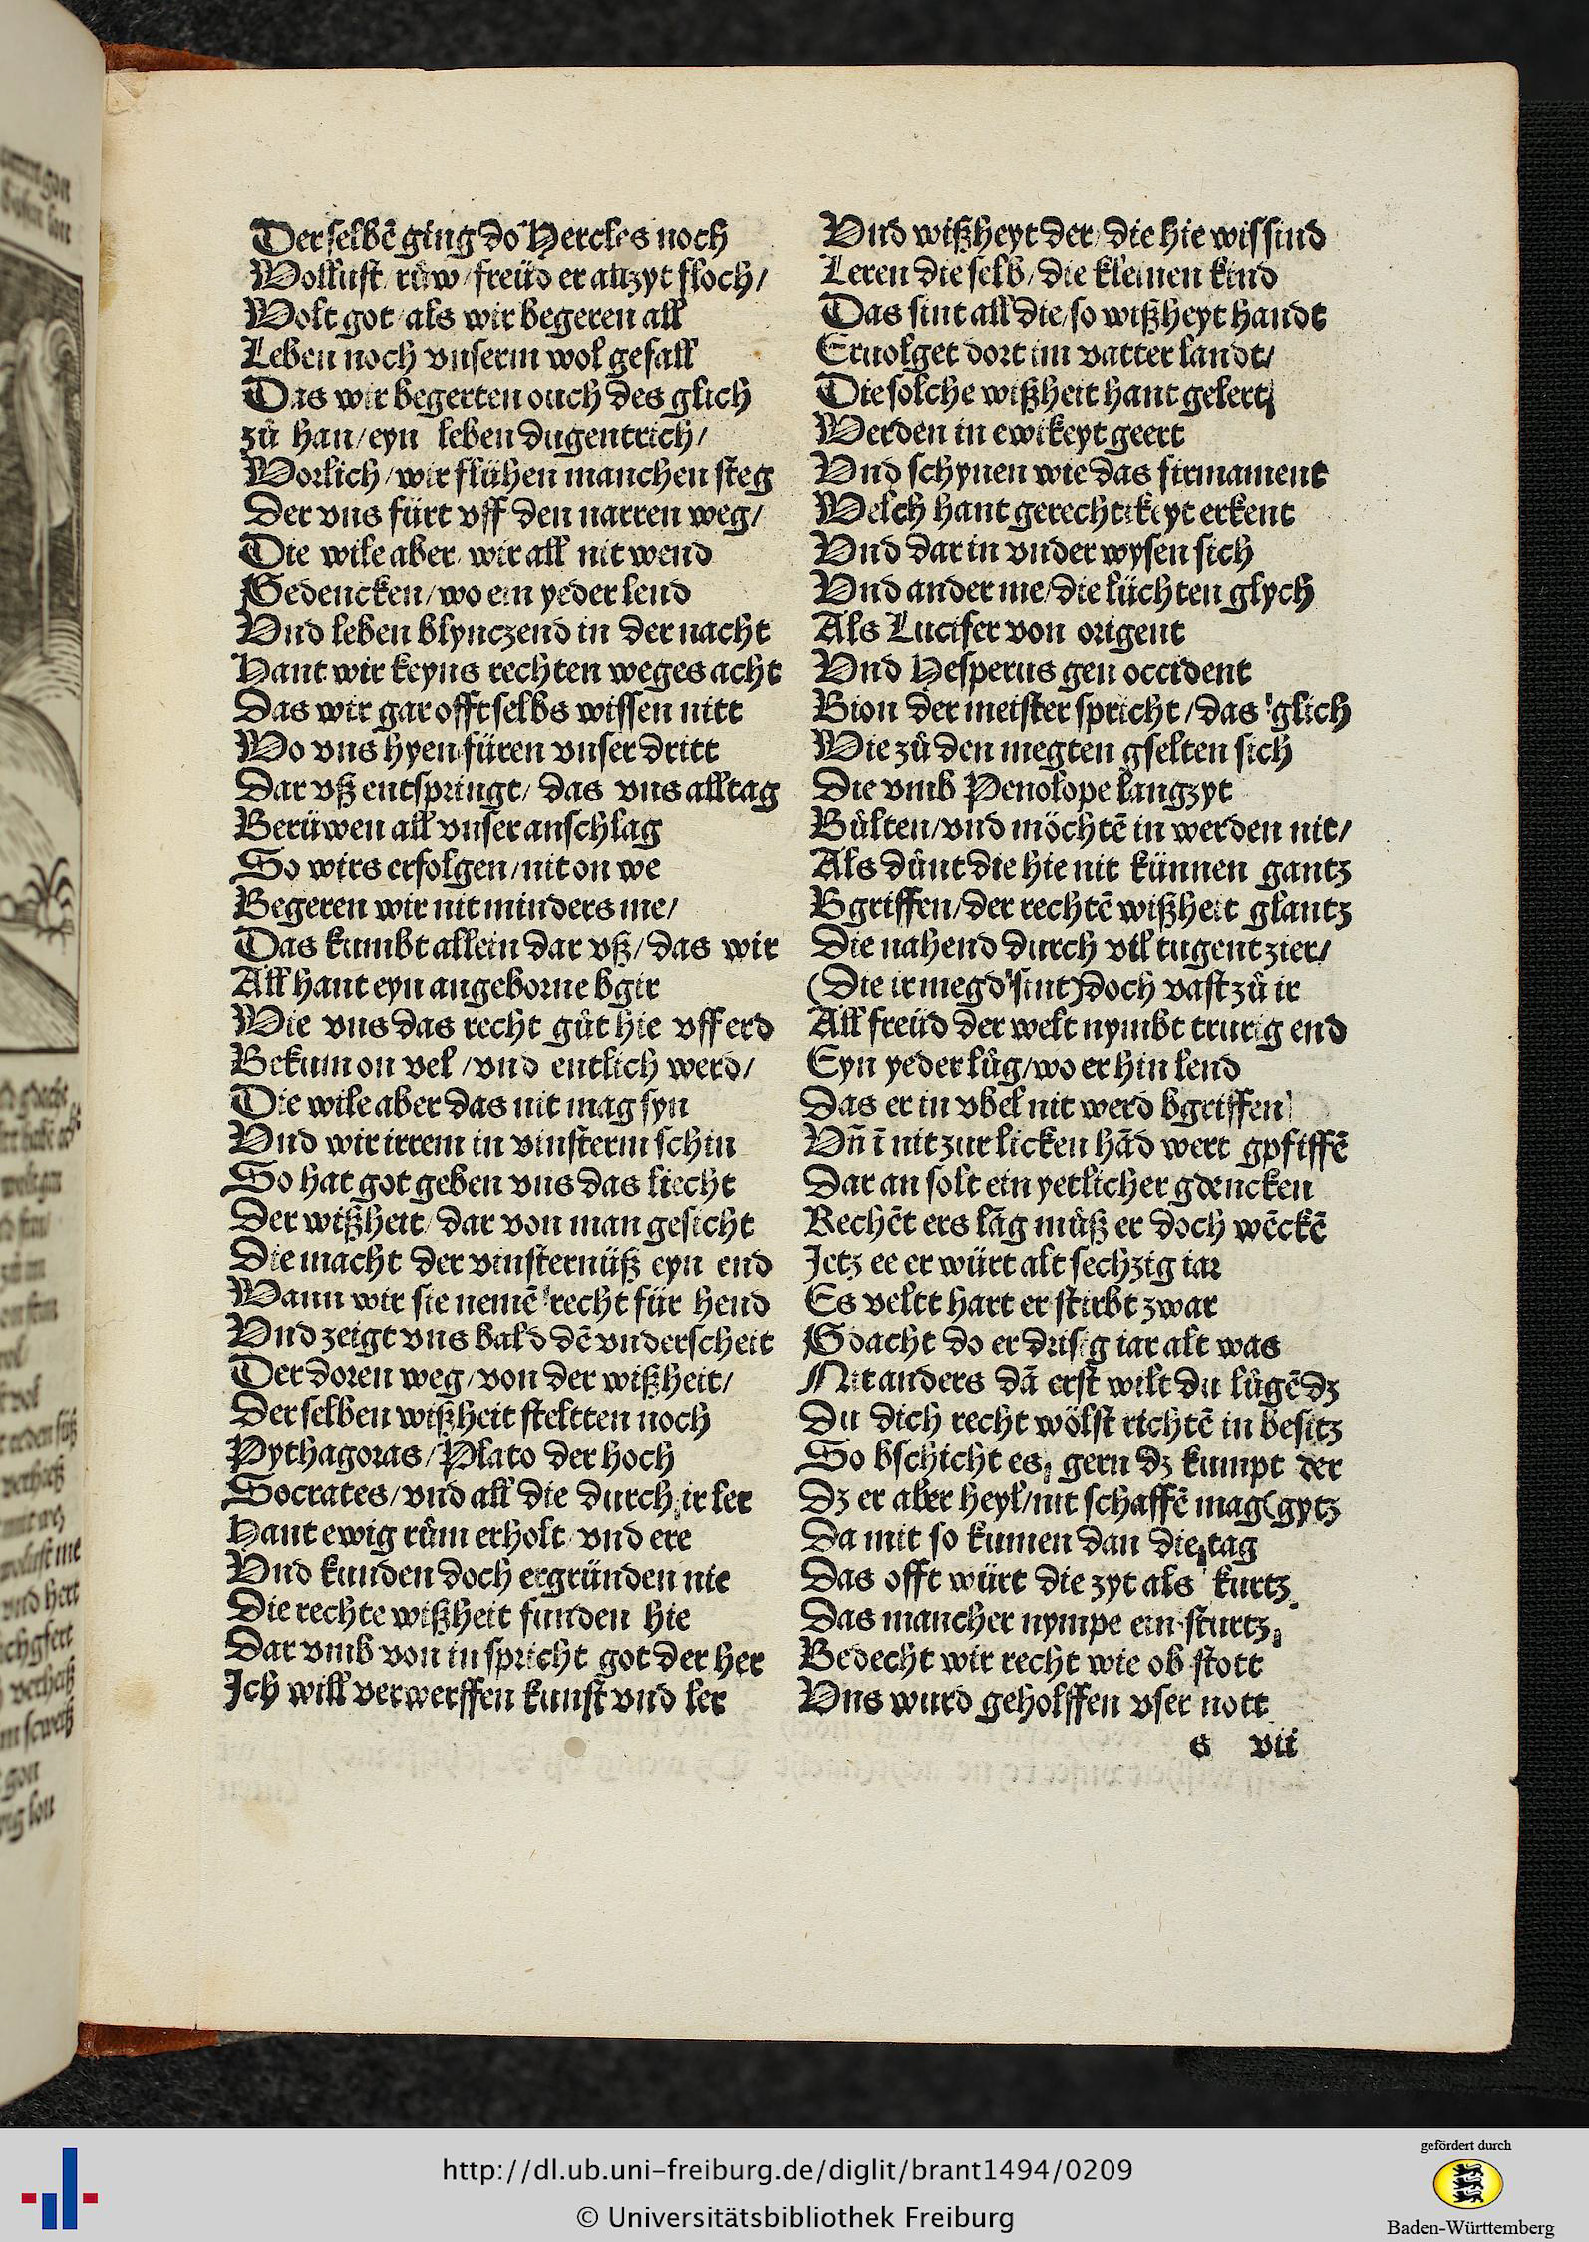 Der selbē ging do Hercles noch
Wollust / růw / freüd er allzyt floch /
Wolt got / als wir begeren all
Leben noch vnserm wol gefall
Das wir begerten ouch des glich
zů han / eyn leben dugentrich /
Worlich / wir flühen manchen steg
Der vns fürt vff den narren weg /
Die wile aber wir all nit wend
Gedencken / wo ein yeder lend
Vnd leben blynczend in der nacht
Hant wir keyns rechten weges acht
Das wir gar offt selbs wissen nitt
Wo vns hyen füren vnser dritt
Dar vß entspringt / das vns alltag
Berüwen all vnser anschlag
So wirs erfolgen / nit on we
Begeren wir nit minders me /
Das kumbt allein dar vß / das wir
All hant eyn angeborne bgir
Wie vns das recht gůt hie vff erd
Bekum on vel / vnd entlich werd /
Die wile aber das nit mag syn
Vnd wir irrem in vinsterm schin
So hat got geben vns das liecht
Der wißheit / dar von man gesicht
Die macht der vinsternüß eyn end
Wann wir sie nemē recht für hend
Vnd zeigt vns bald dē vnderscheit
Der doren weg / von der wißheit /
Der selben wißheit steltten noch
Pythagoras / Plato der hoch
Socrates / vnd all die durch ir ler
Hant ewig rům erholt / vnd ere
Vnd kunden doch ergründen nie
Die rechte wißheit funden hie
Dar vmb von in spricht got der her
Ich will verwerffen kunst vnd ler
Vnd wißheyt der / die hie wis sind
Leren die selb / die kleinen kind
Das sint all die / so wißheyt handt
Eruolget dort im vatter landt /
Die solche wißheit hant gelert
Werden in ewikeyt geert
Vnd schynen wie das firmament
Welch hant gerechtikeyt erkent
Vnd dar in vnder wysen sich
Vnd ander me / die lüchten glych
Als Lucifer von origent
Vnd Hesperus gen occident
Bion der meister spricht / das glich
Wie zů den megten gselten sich
Die vmb Penolope langzyt
Bůlten / vnd möchtē in werden nit /
Als důnt die hie nit künnen gantz
Bgriffen / der rechtē wißheit glantz
Die nahend durch vil tugent zier /
(Die ir megd sint) doch vast zů ir
All freüd der welt nymbt trurig end
Eyn yeder lůg / wo er hin lend
Das er in vbel nit werd bgriffen
Vn̄ ī nit zur licken hād wert gpfiffē
Dar an solt ein yetlicher gdencken
Rechēt ers lāg můß er doch wēckē
Jetz ee er würt alt sechzig iar
Es veltt hart er stirbt zwar
Gdacht do er drisig iar alt was
Nit anders dā erst wilt du lůgē dz
Du dich recht wölst richtē in besitz
So bschicht es gern dz kumpt der
Dz er aber heyl / nit schaffē mag (gytz
Da mit so kumen dan die tag
Das offt würt die zyt als kurtz
Das mancher nympe ein sturtz
Bedecht wir recht wie ob stott
Vns wurd geholffen vser nott
s vii
http://dl.ub.uni-freiburg.de/diglit/brant1494/0209
© Universitätsbibliothek Freiburg
gefördert durch
Baden-Württemberg